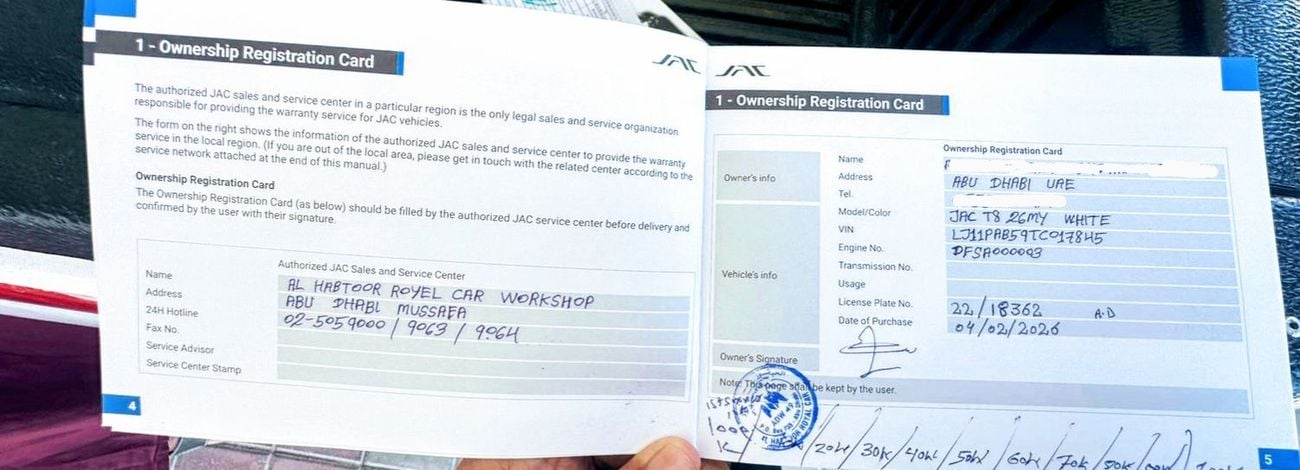 1 - Ownership Registration Card
JAC
The authorized JAC sales and service center in a particular region is the only legal sales and service organization
responsible for providing the warranty service for JAC vehicles.
The form on the right shows the information of the authorized JAC sales and service center to provide the warranty
service in the local region. (If you are out of the local area, please get in touch with the related center according to the
service network attached at the end of this manual.)
Ownership Registration Card
The Ownership Registration Card (as below) should be filled by the authorized JAC service center before delivery and
confirmed by the user with their signature.
Authorized JAC Sales and Service Center
Name AL HABTOOR ROYEL CAR WORKSHOP
Address ABU DHABI MUSSAFA
24H Hotline 02-5059000 / 9063 / 9064
Fax No.
Service Advisor
Service Center Stamp
4
JAC
1 - Ownership Registration Card
Ownership Registration Card
Owner's info
Name
Address ABU DHABI UAE
Tel.
Vehicle's info
Model/Color JAC T8 26MY WHITE
VIN LJ11PAB59TC017845
Engine No. DFSA000003
Transmission No.
Usage
License Plate No. 22/18362 A.D
Date of Purchase 04/02/2026
Owner's Signature
Note: This page shall be kept by the user.
20K / 30K / 40K / 50K / 60K / 70K / 80K
5